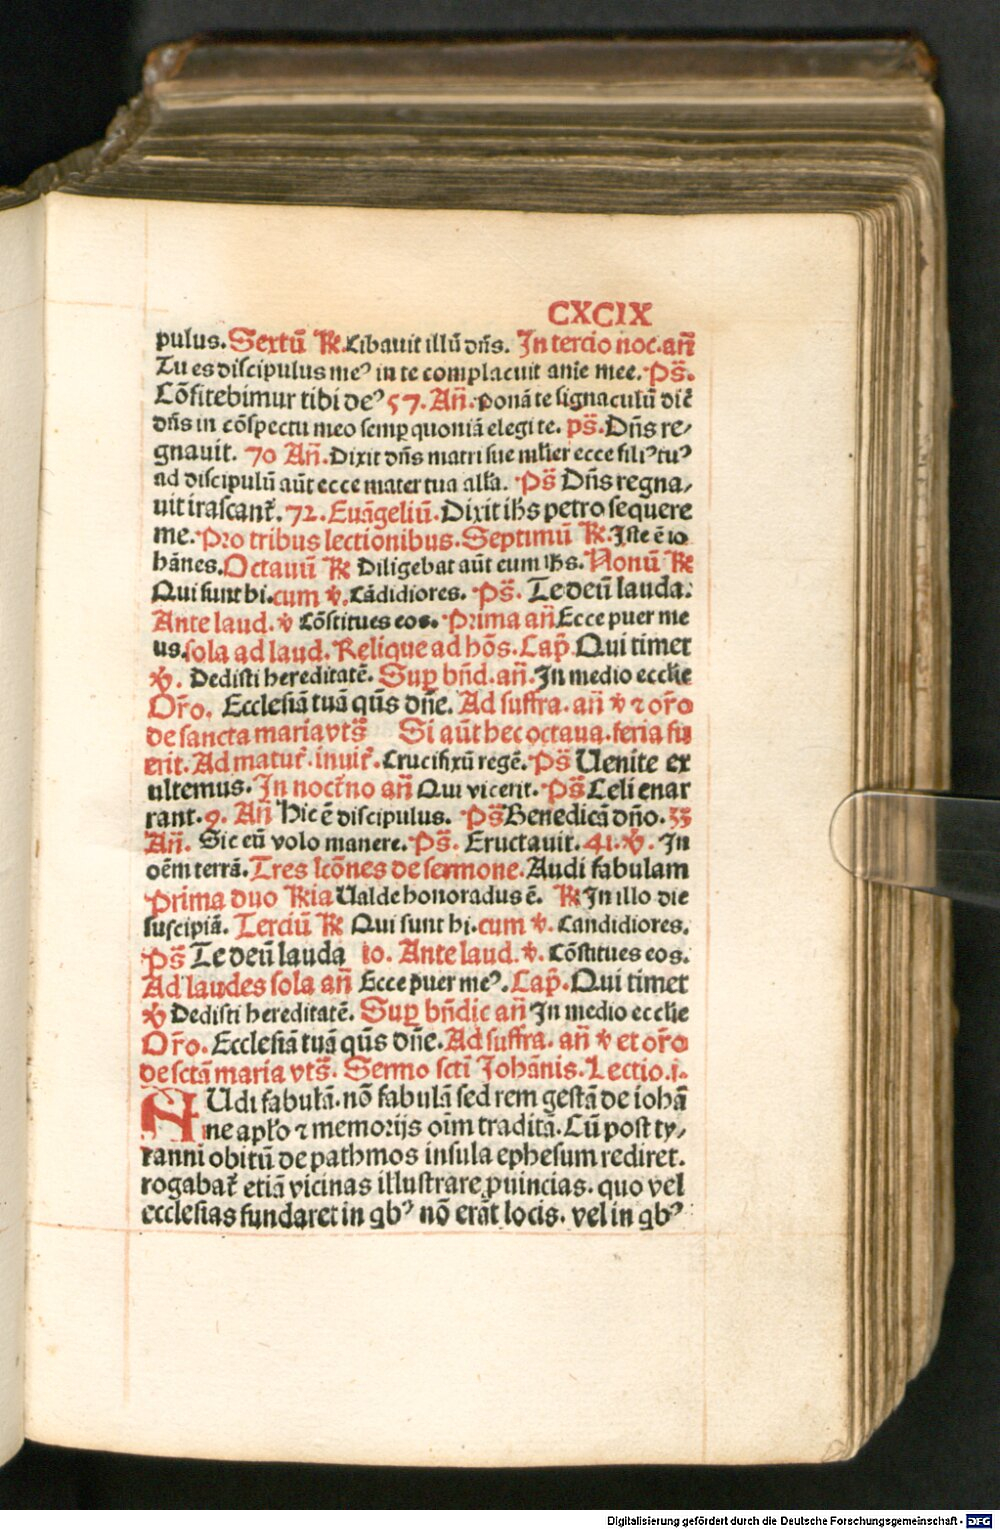 CXCIX
pulus. Sextū ℟. Cibauit illū dn̄s. In tercio noc. an̄
Tu es discipulus meꝰ in te complacuit anīe mee. Ps̄.
Cōfitebimur tibi deꝰ 57. An̄. Ponā te signaculū dic̄
dn̄s in cōspectu meo semꝑ quoniā elegi te. ps̄. Dn̄s re⸗
gnauit. 70 An̄. Dixit dn̄s matri sue mlīer ecce filiꝰ tuꝰ
ad discipulū aūt ecce mater tua alła. Ps̄ Dn̄s regna⸗
uit irascant᷑. 72. Euāgeliū. Dixit ih̄s petro sequere
me. Pro tribus lectionibus. Septimū ℟. Iste ē io
hānes. Octauū ℟ Diligebat aūt eum ih̄s. Nonū ℟
Qui sunt hi. cum ℣. Cādidiores. Ps̄. Te deū lauda:
Ante laud. ℣ Cōstitues eos. Prima an̄ Ecce puer me
us. sola ad laud. Relique ad hōs. Cap̄. Qui timet
℣. Dedisti hereditatē. Suꝑ bn̄d. an̄. In medio eccłie
Or̄o. Ecclesiā tuā qūs dn̄e. Ad suffra. an̄ ℣ ⁊ or̄o
de sancta maria vts̄ Si aūt hec octaua. feria su
erit. Ad matut᷑. inuit᷑. Crucifixū regē. Ps̄ Uenite ex
ultemus. In noct᷑no an̄ Qui vicerit. Ps̄ Celi enar
rant. 9. An̄ Hic ē discipulus. Ps̄ Benedicā dn̄o. 33
An̄. Sic eū volo manere. Ps̄. Eructauit. 41. ℣. In
oēm terrā. Tres lcōnes de sermone. Audi fabulam
Prima duo ℟ia Ualde honoradus ē. ℟ In illo die
suscipiā. Terciū ℟ Qui sunt hi. cum ℣. Candidiores.
Ps̄ Te deū lauda 10. Ante laud. ℣. Cōstitues eos.
Ad laudes sola an̄ Ecce puer meꝰ. Cap̄. Qui timet
℣ Dedisti hereditatē. Suꝑ bn̄dic an̄ In medio eccłie
Or̄o. Ecclesiā tuā qūs dn̄e. Ad suffra. an̄ ℣ et or̄o
de sctā maria vts̄. Sermo sctī Johānis. Lectio. j.
AUdi fabulā. nō fabulā sed rem gestā de iohā
ne apło ⁊ memorijs oīm traditā. Cū post ty⸗
ranni obitū de pathmos insula ephesum rediret.
rogabat᷑ etiā vicinas illustrare ꝓuincias. quo vel
ecclesias fundaret in qbꝰ nō erāt locis. vel in qbꝰ
Digitalisierung gefördert durch die Deutsche Forschungsgemeinschaft - DFG